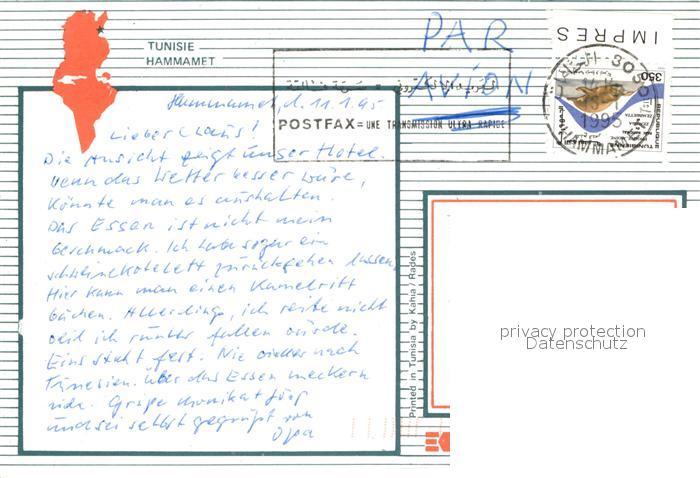 TUNISIE
HAMMAMET
PAR
AVION
IMPRES
350
POSTFAX = UNE TRANSMISSION ULTRA RAPIDE
Hammamet, d. 11.1.95
Lieber Claus!
Die Ansicht zeigt unser Hotel.
Wenn das Wetter besser wäre,
könnte man es aushalten.
Das Essen ist nicht mein
Geschmack. Ich habe sogar ein
Schweinekotelett zurückgehen lassen.
Hier kann man einen Kamelritt
buchen. Allerdings, ich reite nicht
weil ich runter fallen würde.
Eins steht fest. Nie wieder nach
Tunesien. Über das Essen meckern
alle. Grüße
und sei selbst gegrüßt von
Opa
Printed in Tunisia by Kahia / Rades
privacy protection
Datenschutz